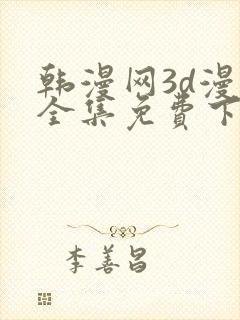 韩漫网3d漫
全集免费下
李善昌